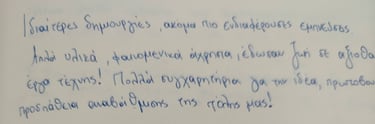 Ιδιαίτερες δημιουργίες, ακόμα πιο ενδιαφέρουσες εμπνεύσεις.
Απλά υλικά, φαινομενικά άχρηστα, έδωσαν ζωή σε αξιοθα
έργα τέχνης! Πολλά συγχαρητήρια για την ιδέα, πρωτοβου
προσπάθεια αναβάθμισης της πόλης μας!